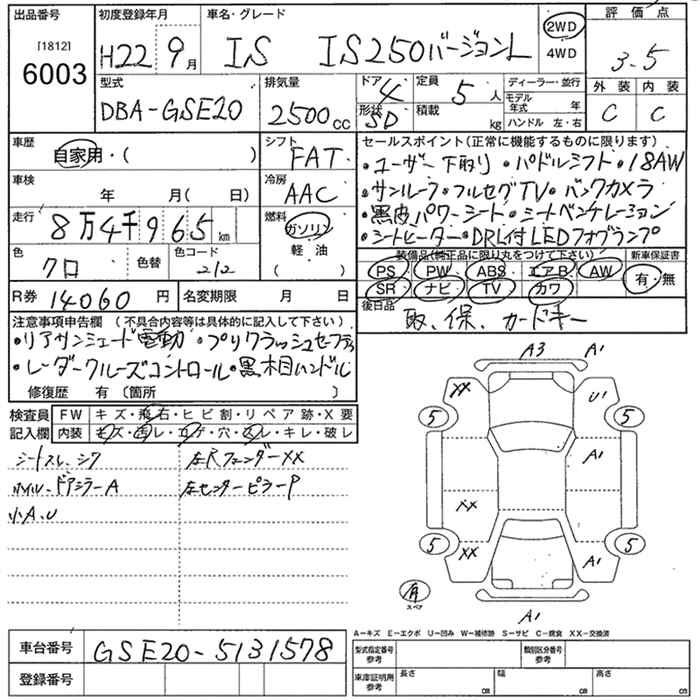 出品番号 初度登録年月 車名・グレード 評価点
[1812] 6003 H22 9月 IS IS250バージョンL 2WD 4WD 3.5
型式 排気量 ドア 4 定員 5人 ディーラー・並行 外装 内装
DBA-GSE20 2500cc 形状 SD 積載 kg モデル年式 年 ハンドル 左・右 C C
車歴 自家用・( ) シフト FAT セールスポイント(正常に機能するものに限ります)
・ユーザー下取り・パドルシフト・18AW
車検 年 月( 日) 冷房 AAC ・サンルーフ・フルセグTV・バックカメラ
走行 8万4千965km 燃料 ガソリン 軽油 ( ) ・黒皮パワーシート・シートベンチレーション
・シートヒーター・DRL付LEDフォグランプ
色 クロ 色替 色コード 212 装備品(純正品に限り丸をつけて下さい) 新車保証書
PS PW ABS エアB AW 有・無
SR ナビ TV カワ
R券 14060円 名変期限 月 日 後日品 取、保、カードキー
注意事項申告欄 (不具合内容等は具体的に記入して下さい)
・リアサンシェード電動・プリクラッシュセーフティ
・レーダークルーズコントロール・黒木目ハンドル
修復歴 有〔箇所 〕
検査員記入欄 FW キズ・飛石・ヒビ割・リペア跡・X要
内装 キズ・汚レ・コゲ・穴・スレ・キレ・破レ
シートスレ、シワ 左Rフェンダーxx
ホイル、ドアミラーA 左センターピラーP
小A、U
A3 A'
xx U'
5 5
A'
xx
5 5
xx A'
有 スペア
A'
A-キズ E-エクボ U-凹み W-補修跡 S-サビ C-腐食 XX-交換済
車台番号 GSE20-5131578 型式指定番号 参考 類別区分番号 参考
登録番号 車庫証明用 参考 長さ cm 幅 cm 高さ cm